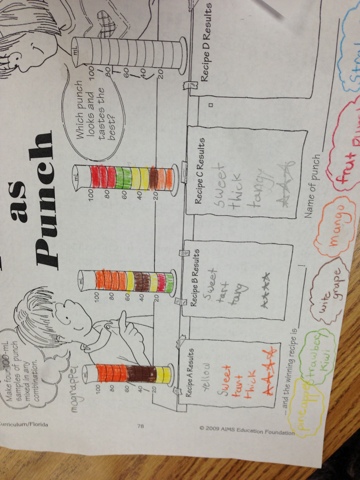 as
Punch
Make four 100-mL
samples of punch
mixed in any
combination.
Which punch
looks and
tastes the
best?
mL
100
80
60
40
20
mL
100
80
60
40
20
mL
100
80
60
40
20
mL
100
80
60
40
20
Recipe A Results
yellow
Sweet
tart
thick
Recipe B Results
Sweet
tart
tang
Recipe C Results
Sweet
thick
tangy
Recipe D Results
...and the winning recipe is
Name of punch
mango
grape
fruit
Curriculum/Florida
© 2009 AIMS Education Foundation